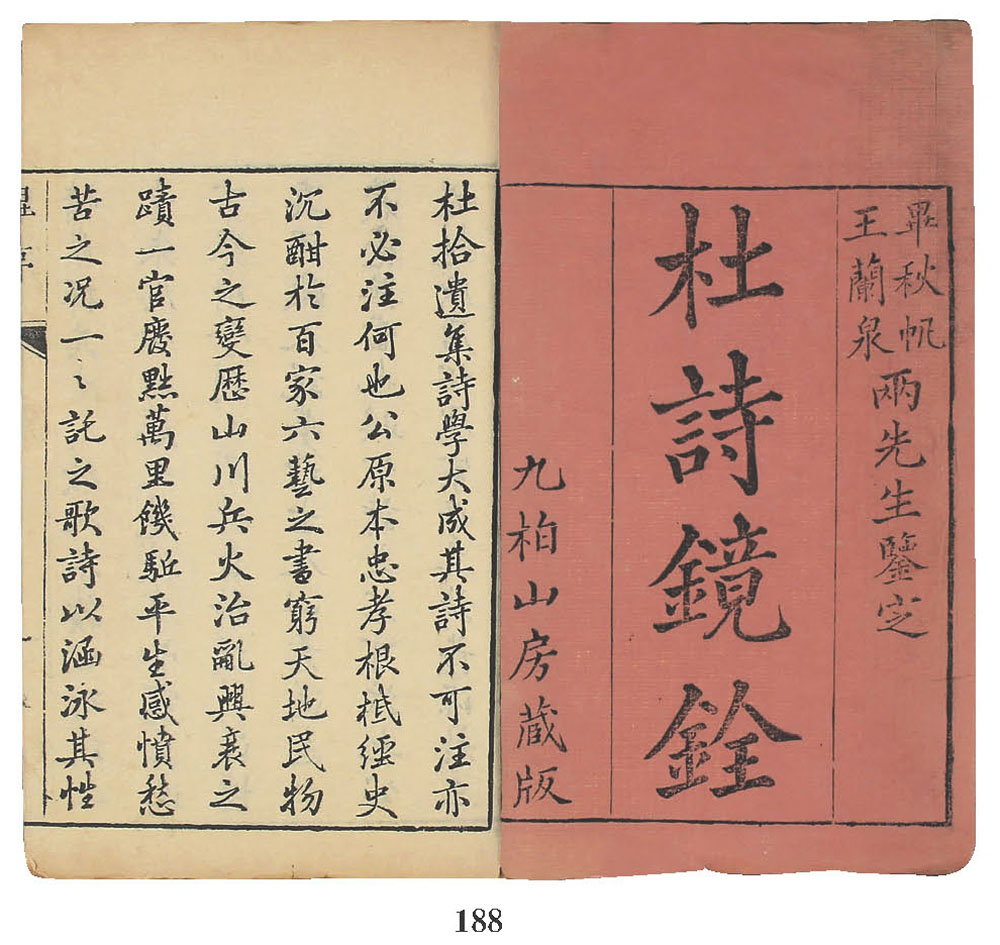 畢秋帆
王蘭泉
兩先生鑒定
杜詩鏡銓
九柏山房藏版
杜拾遺集詩學大成其詩不可注亦
不必注何也公原本忠孝根柢經史
沉酣於百家六藝之書窮天地民物
古今之變歷山川兵火治亂興衰之
蹟一官廢黜萬里饑驅平生感憤愁
苦之况一〻託之歌詩以涵泳其性
188